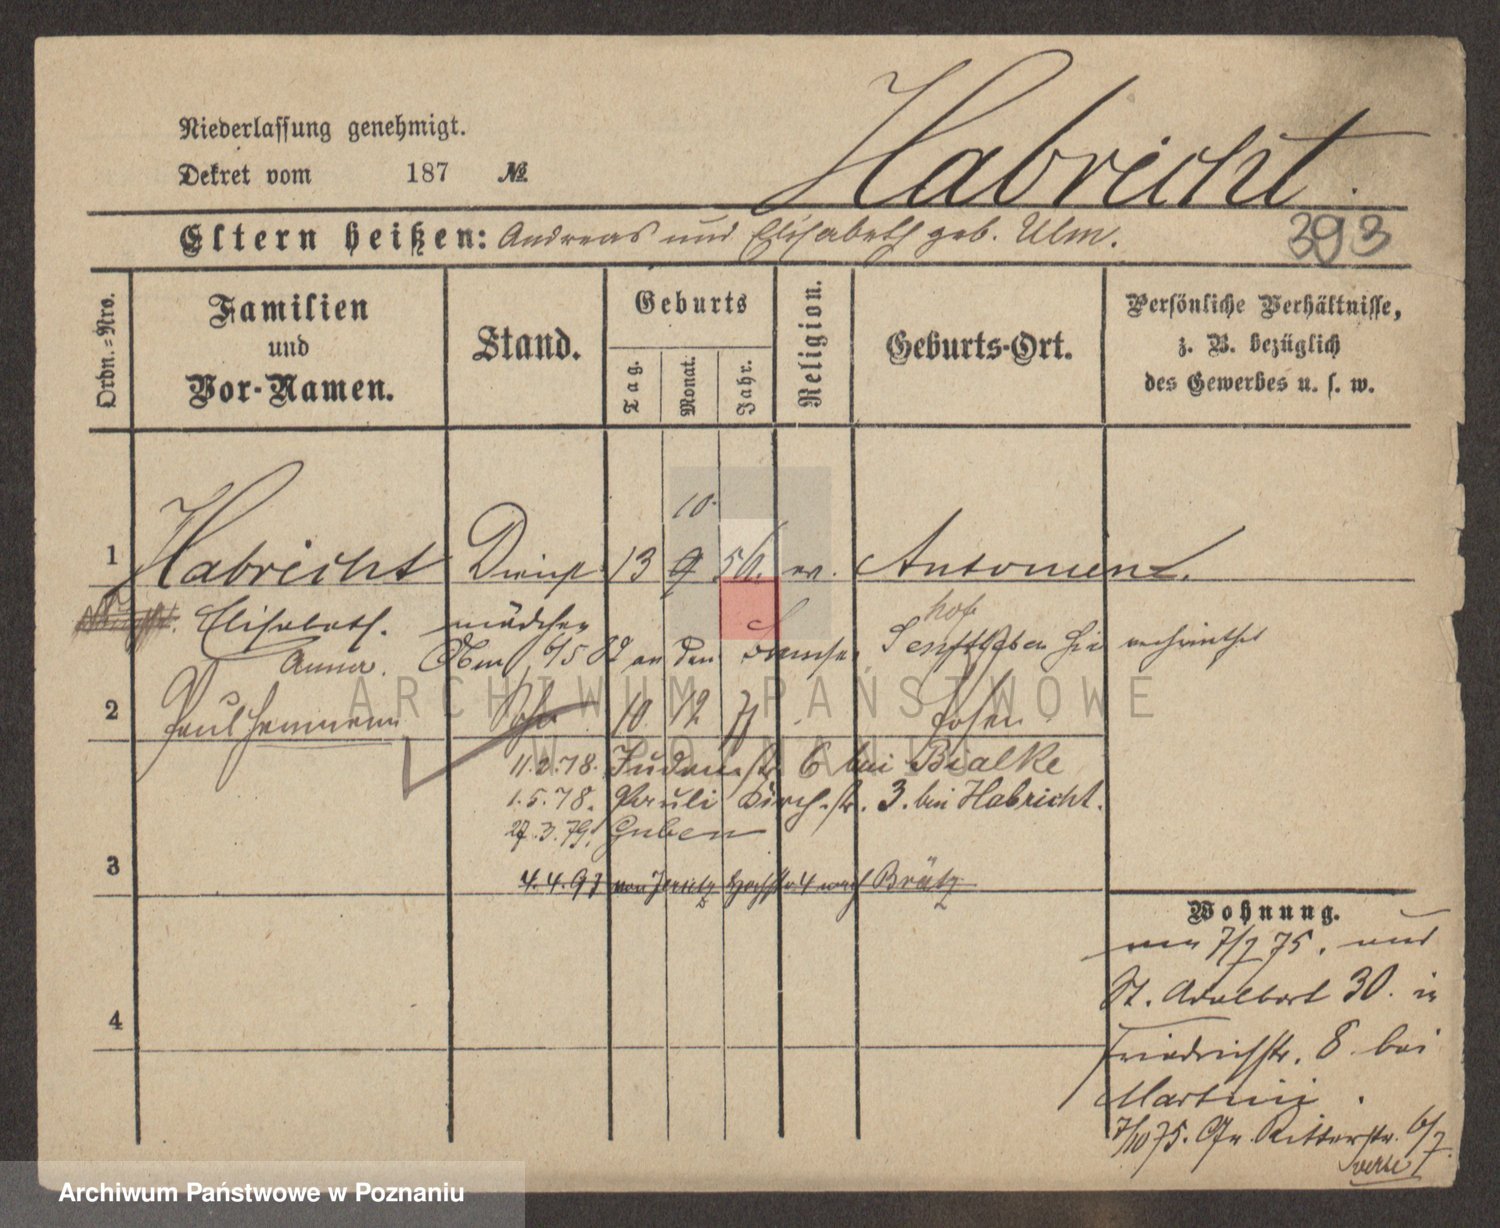 Niederlassung genehmigt.
Dekret vom 187 №
Habricht.
Eltern heißen: Andreas und Elisabeth geb. Ulm.
393
Ordn.=Nro.
Familien
und
Vor-Namen.
Stand.
Geburts
Tag.
Monat.
Jahr.
Religion.
Geburts-Ort.
Persönliche Verhältnisse,
z. B. bezüglich
des Gewerbes u. s. w.
10.
1 Habricht Dienst 13 9 50. ev. Antonienz.
Elisabeth. mädchen
hof
Anna.
ARCHIWUM PAŃSTWOWE
W POZNANIU
2 Paul Hermann Sohn 10. 12 77 Posen
11.2.78. Judenstr. 6 bei Bialke
1.5.78. Pauli Kirch-str. 3. bei Habricht.
27.3.79. Guben
3
4.4.97 von Jersitz 4 nach Brätz
Wohnung.
7/7 75. und
St. Adalbert 30. in
Friedrichstr. 8 bei
Martini.
4
7/10 75. Gr. Ritterstr. 6/7.
verte
Archiwum Państwowe w Poznaniu